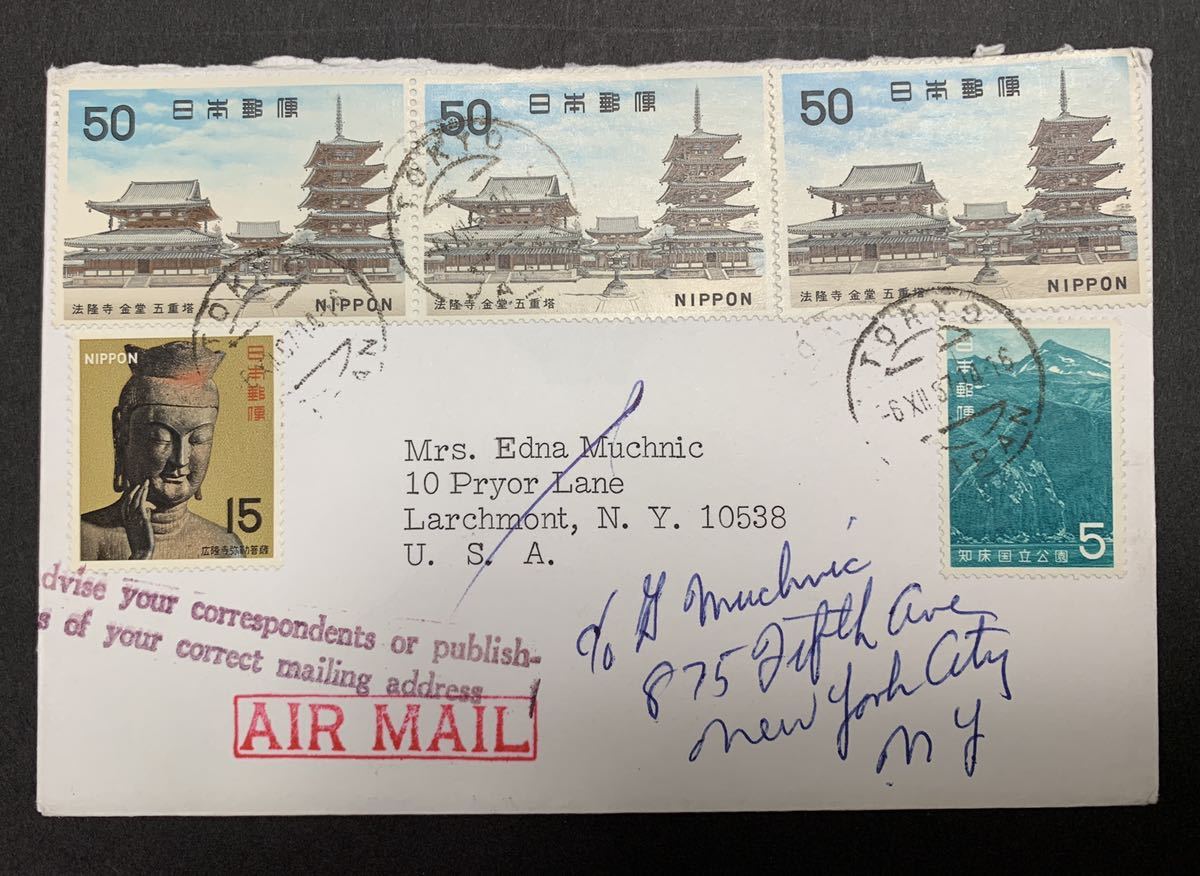 50 日本郵便
法隆寺 金堂 五重塔 NIPPON
50 日本郵便
法隆寺 金堂 五重塔 NIPPON
50 日本郵便
法隆寺 金堂 五重塔 NIPPON
TOKYO
TOKYO
TOKYO
-6 XII 67 10-16
JAPAN
NIPPON
日本郵便
15
広隆寺弥勒菩薩
日本郵便
5
知床国立公園
Mrs. Edna Muchnic
10 Pryor Lane
Larchmont, N. Y. 10538
U. S. A.
c/o G Muchnic
875 Fifth Ave
New York City
N Y
dvise your correspondents or publish-
s of your correct mailing address
AIR MAIL